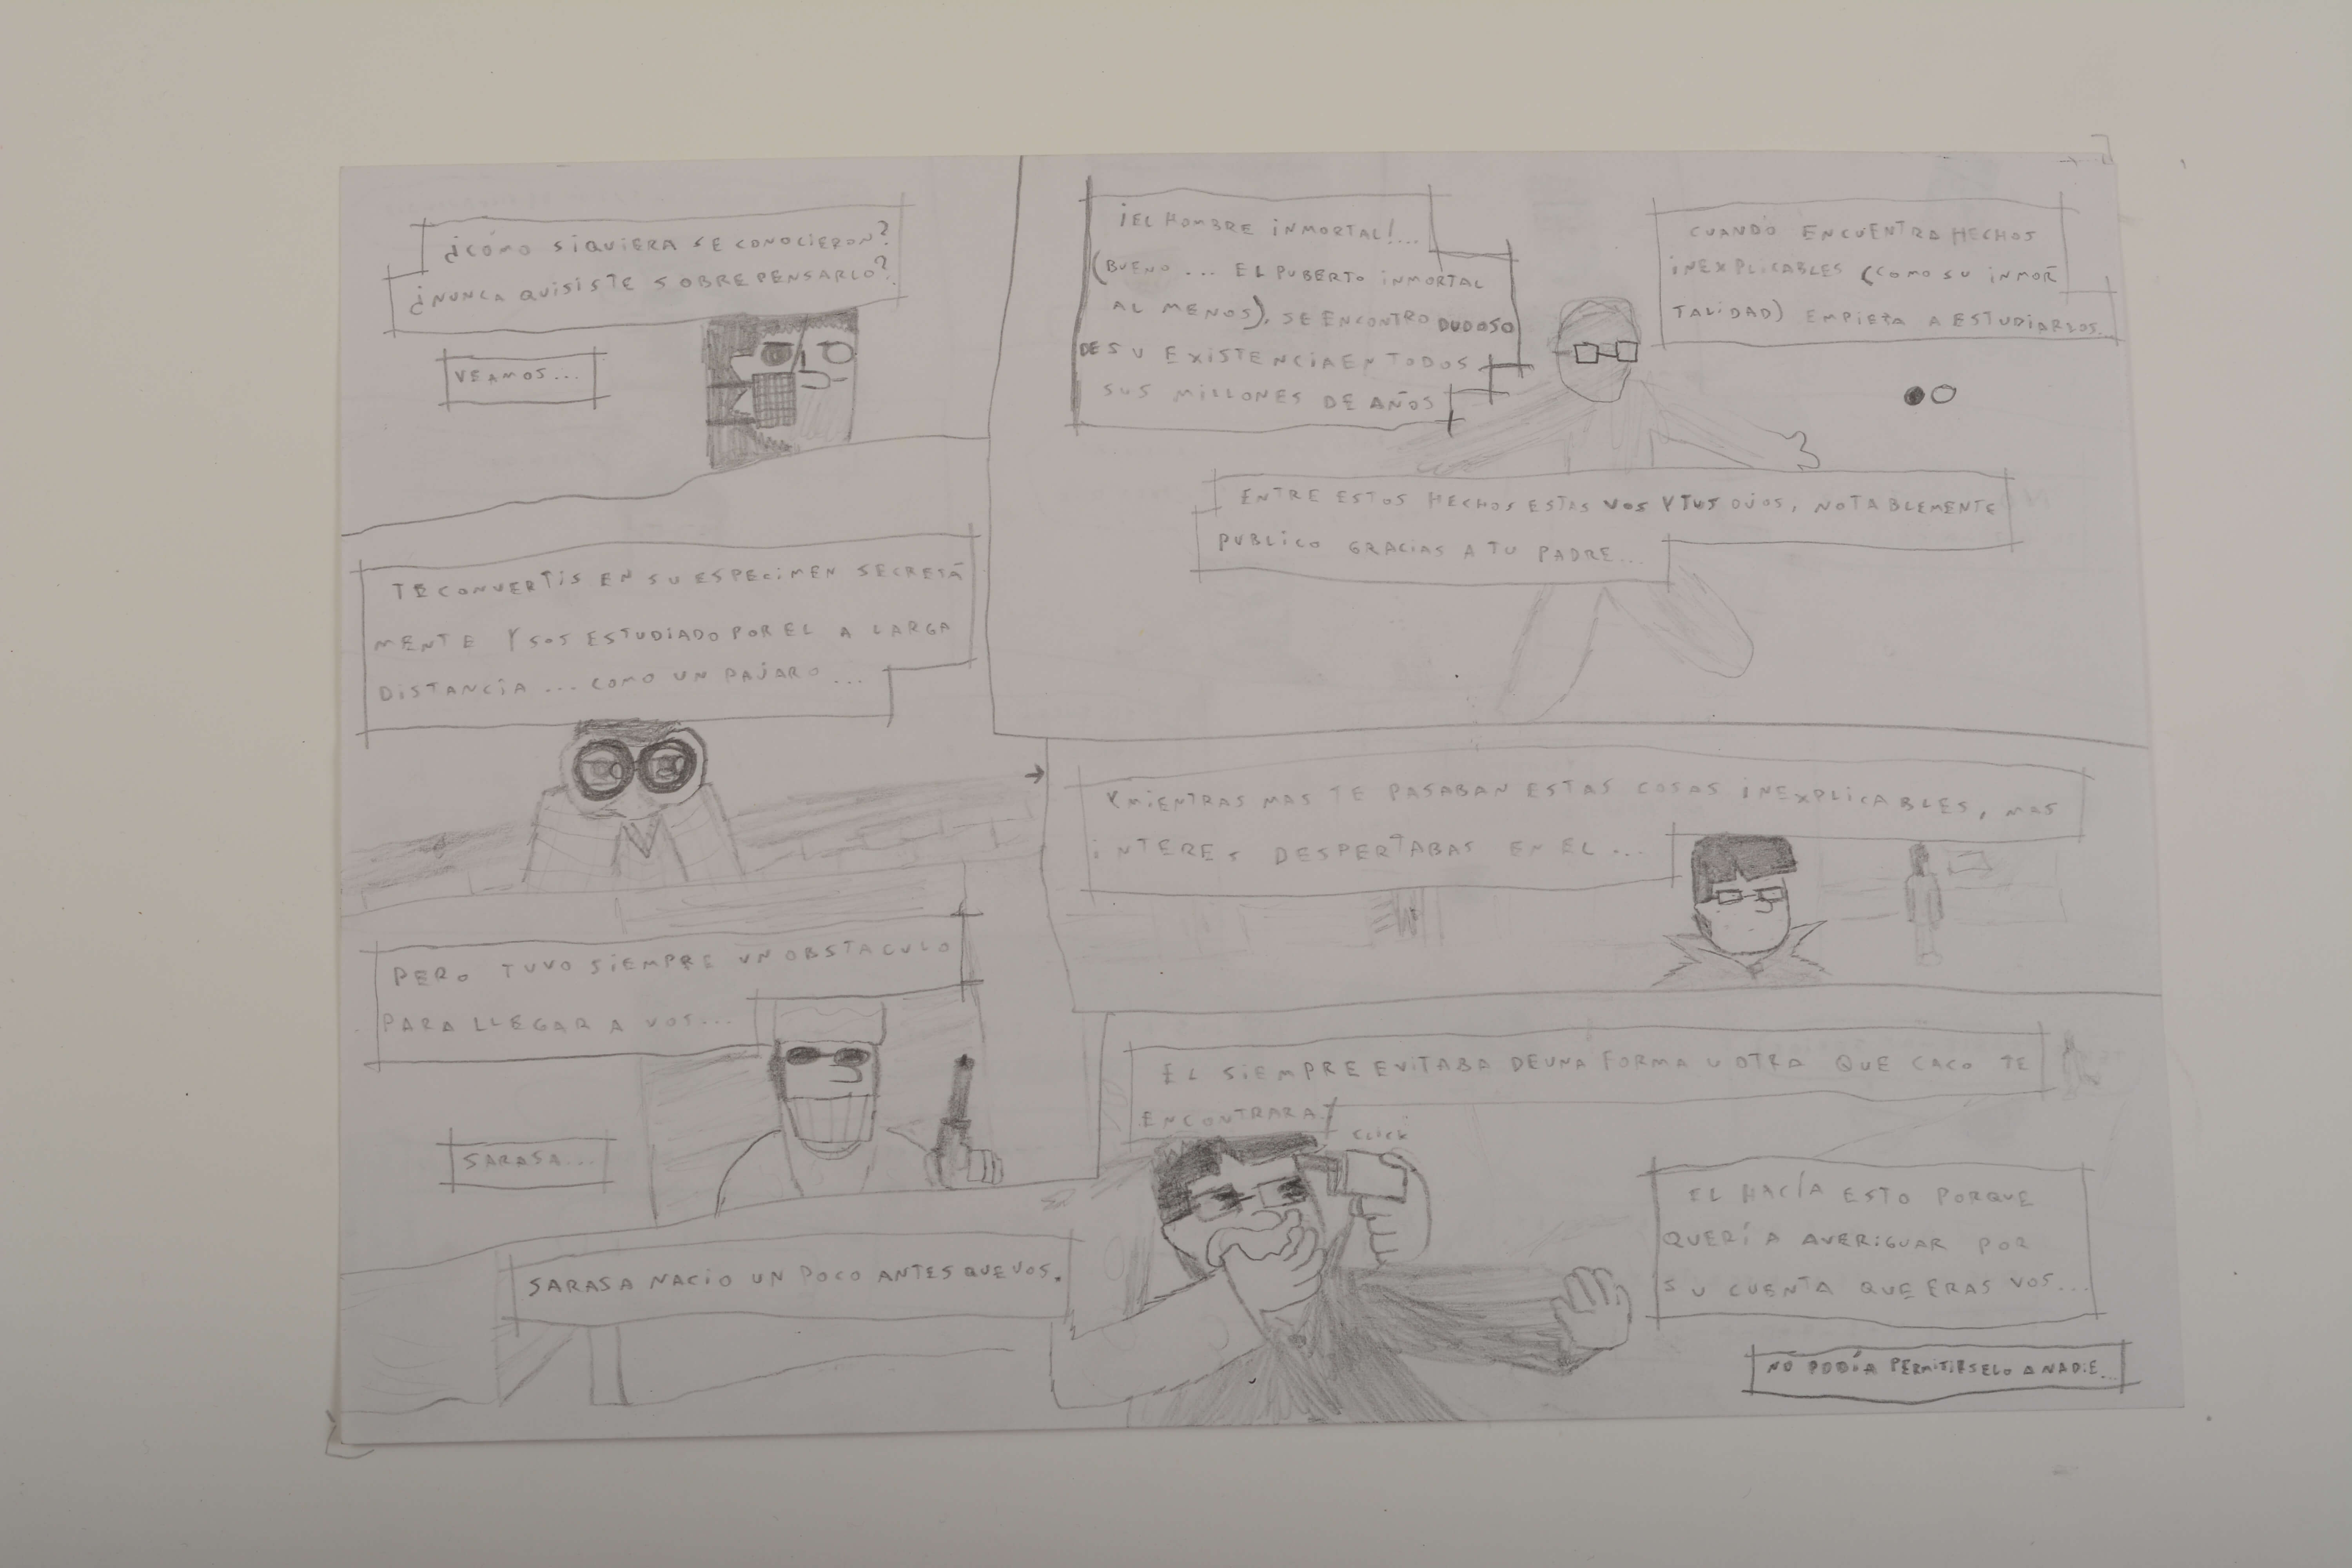 ¿CÓMO SIQUIERA SE CONOCIERON?
¿NUNCA QUISISTE SOBREPENSARLO?
VEAMOS...
¡EL HOMBRE INMORTAL!...
(BUENO... EL PUBERTO INMORTAL
AL MENOS), SE ENCONTRO DUDOSO
DE SU EXISTENCIA EN TODOS
SUS MILLONES DE AÑOS
CUANDO ENCUENTRA HECHOS
INEXPLICABLES (COMO SU INMOR
TALIDAD) EMPIEZA A ESTUDIARLOS...
ENTRE ESTOS HECHOS ESTAS VOS Y TUS OJOS, NOTABLEMENTE
PUBLICO GRACIAS A TU PADRE...
TE CONVERTIS EN SU ESPECIMEN SECRETA
MENTE Y SOS ESTUDIADO POR EL A LARGA
DISTANCIA... COMO UN PAJARO...
Y MIENTRAS MAS TE PASABAN ESTAS COSAS INEXPLICABLES, MAS
INTERES DESPERTABAS EN EL...
PERO TUVO SIEMPRE UN OBSTACULO
PARA LLEGAR A VOS...
SARASA...
SARASA NACIO UN POCO ANTES QUE VOS.
EL SIEMPRE EVITABA DE UNA FORMA U OTRA QUE CACO TE
ENCONTRARA.
CLICK
EL HACÍA ESTO PORQUE
QUERÍA AVERIGUAR POR
SU CUENTA QUE ERAS VOS...
NO PODÍA PERMITIRSELO A NADIE...